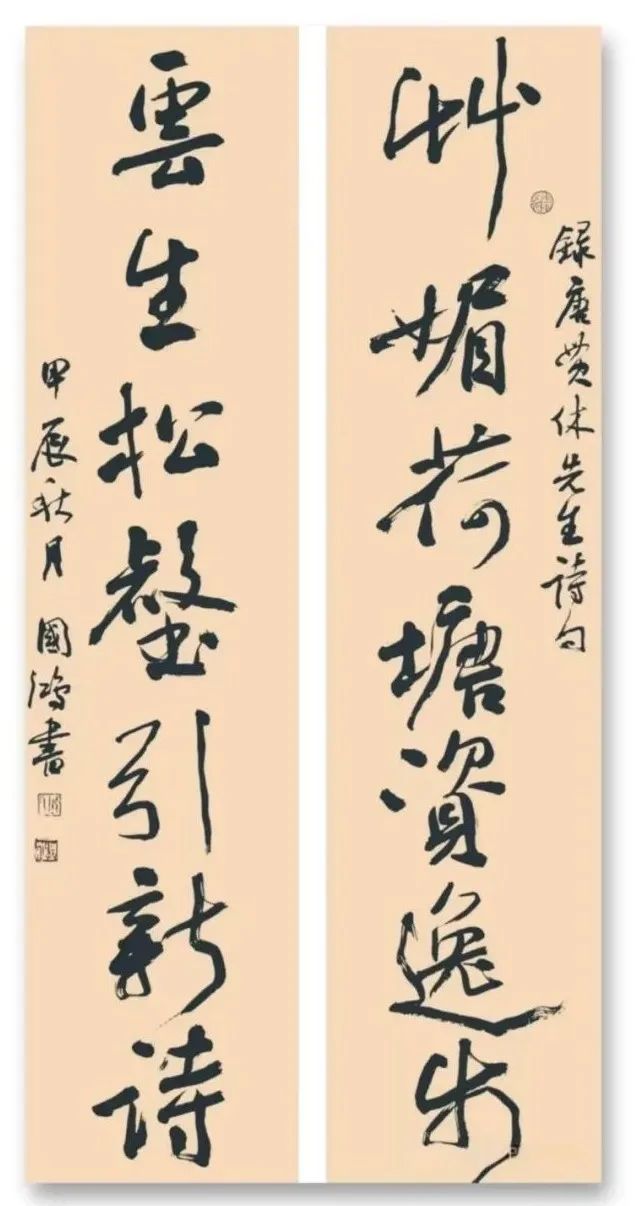 録唐貫休先生詩句
艸媚荷塘資逸步
雲生松壑引新詩
甲辰秋月國鴻書